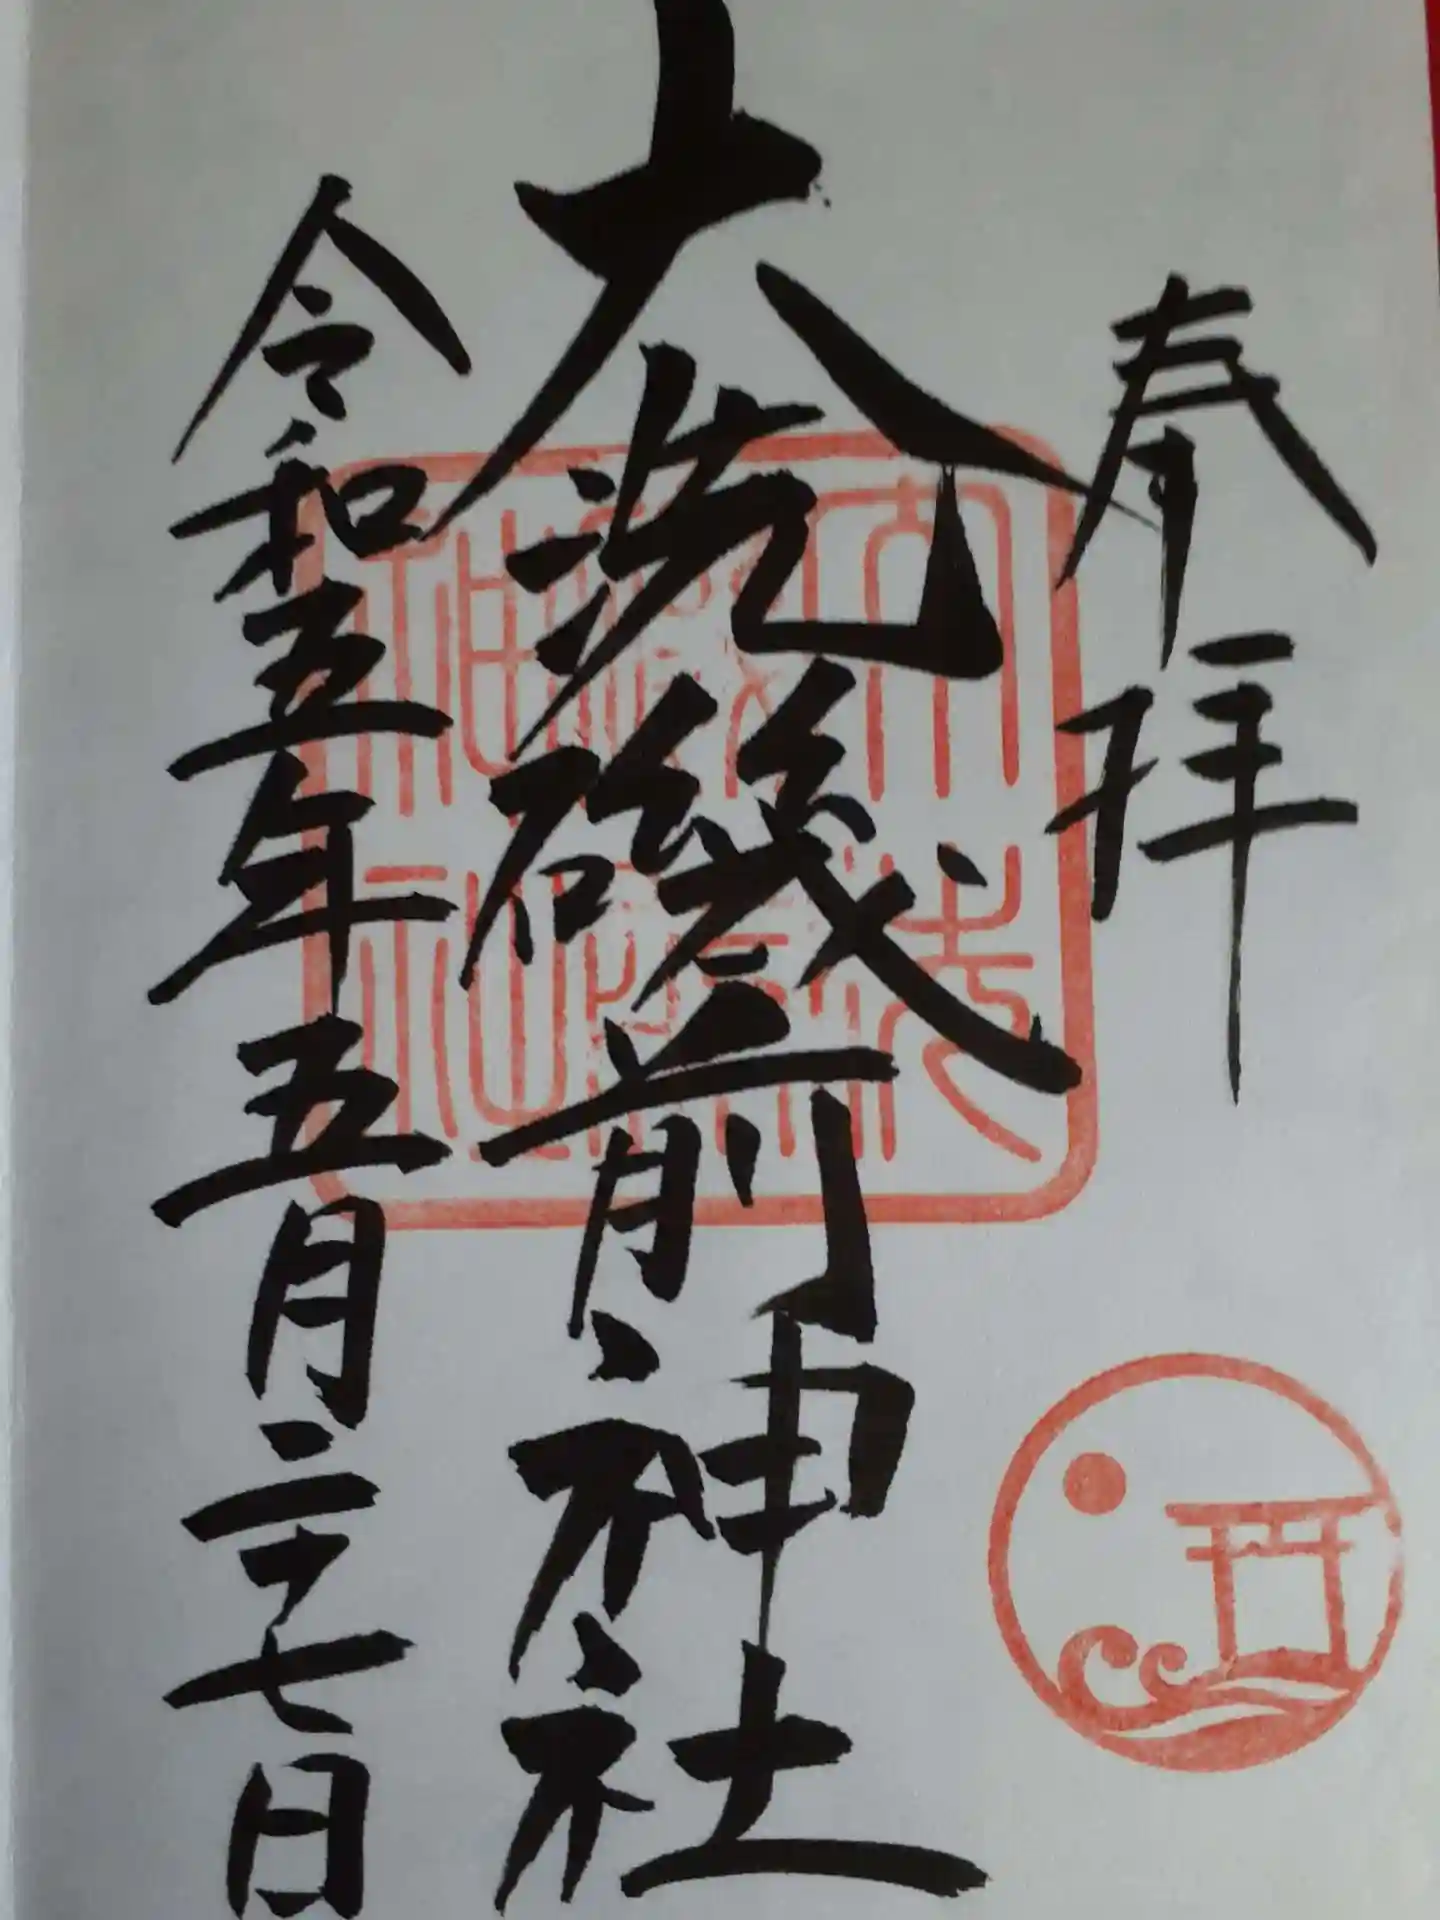 奉拝
大洗磯前神社
令和五年五月二十七日
大洗
磯前
神社